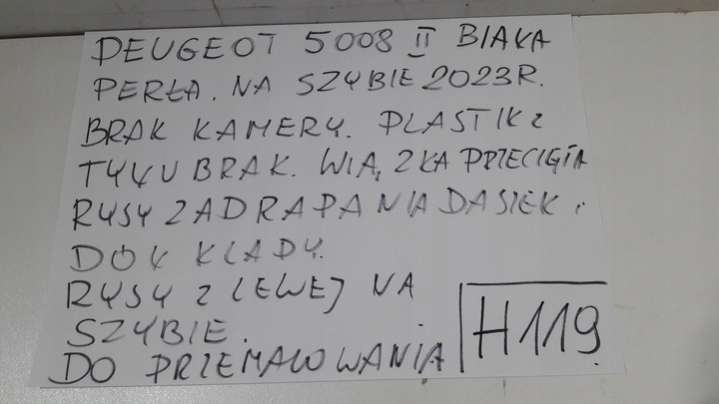 PEUGEOT 5008 II BIAŁA
PERŁA. NA SZYBIE 2023R.
BRAK KAMERY. PLASTIK Z
TYŁU BRAK. WIĄZKA PRZECIĘTA
RYSY ZADRAPANIA DASZEK i
DÓŁ KLAPY.
RYSY Z LEWEJ NA
SZYBIE.
DO PRZEMALOWANIA
H119